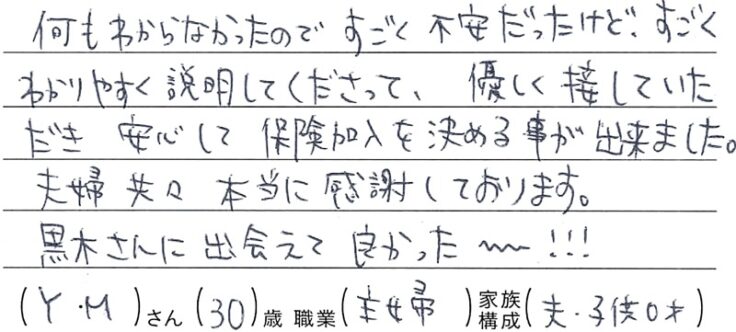 何もわからなかったので すごく 不安だったけど、すごく
わかりやすく 説明してくださって、 優しく 接していた
だき 安心して 保険加入を決める事が出来ました。
夫婦 共々 本当に 感謝しております。
黒木さんに 出会えて 良かった 〜〜 !!!
(Y・M)さん (30)歳 職業(主婦) 家族構成(夫・子供0才)